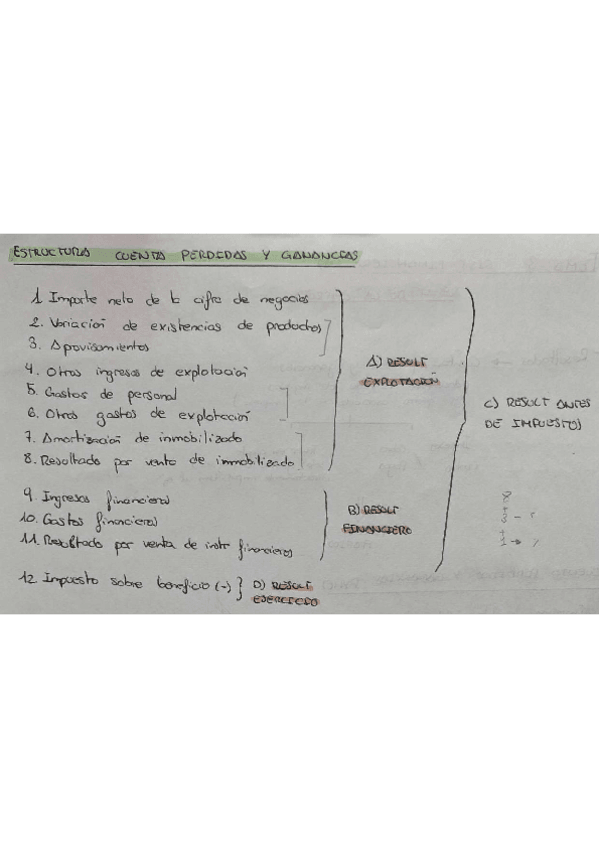 ESTRUCTURA CUENTA PERDIDAS Y GANANCIAS
1. Importe neto de la cifra de negocios
2. Variación de existencias de productos
3. Aprovisamientos
A) RESULT
4. Otros ingresos de explotación
EXPLOTACIÓN
5. Gastos de personal
C) RESULT ANTES
6. Otros gastos de explotación
DE IMPUESTOS
7. Amortización de inmobilizado
8. Resoltado por venta de inmobilizado
9. Ingresos financieros
B) RESULT
10. Gastos financieros
FINANCIERO
11. Resoltado por venta de instr financieros
12. Impuesto sobre beneficio (-) } D) RESULT
EJERCICIO